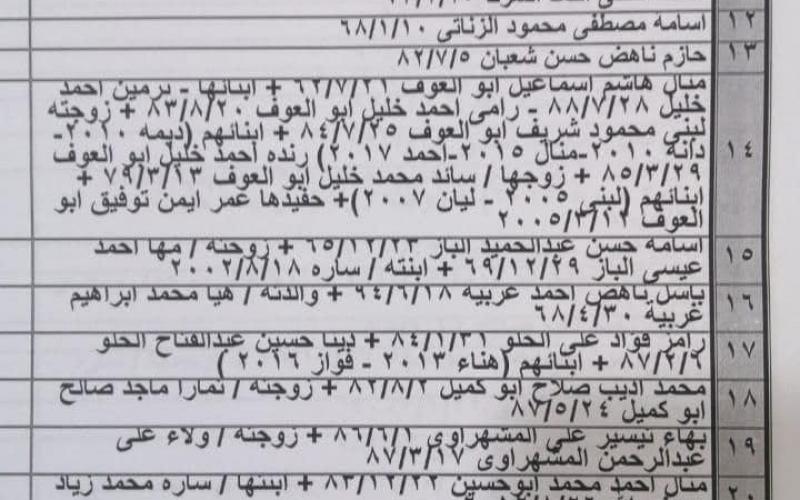 ١٢ اسامة مصطفى محمود الزناتى ٦٨/١/١٠
١٣ حازم ناهض حسن شعبان ٨٢/٧/٥
منال هاشم اسماعيل ابو العوف ٦٢/٧/٢١ + ابنائها - نرمين احمد
خليل ٨٨/٧/٢٨ - رامى احمد خليل ابو العوف ٨٣/٨/٢٠ + زوجته
لبنى محمود شريف ابو العوف ٨٤/٧/٢٥ + ابنائهم (ديمه ٢٠١٠-
١٤ دانه ٢٠١٠-منال ٢٠١٥-احمد ٢٠١٧) رنده احمد خليل ابو العوف
٨٥/٣/٢٩ + زوجها / سائد محمد خليل ابو العوف ٧٩/٣/١٣ +
ابنائهم (لبنى ٢٠٠٥ - ليان ٢٠٠٧)+ حفيدها عمر ايمن توفيق ابو
العوف ٢٠٠٥/٣/١٢
١٥ اسامه حسن عبدالحميد الباز ٦٥/١٢/٢٣ + زوجته / مها احمد
عيسى الباز ٦٩/١٢/٢٩ + ابنته / ساره ٢٠٠٢/٨/١٨
١٦ باسل ناهض احمد غربيه ٩٤/٦/١٨ + والدته / هيا محمد ابراهيم
غربية ٦٨/٤/٣٠
١٧ رامز فؤاد على الحلو ٨٤/١/٣١ + دينا حسين عبدالفتاح الحلو
٨٧/٢/٦ + ابنائهم (هناء ٢٠١٣ - فواز ٢٠١٦ )
١٨ محمد اديب صلاح ابو كميل ٨٢/٨/٢ + زوجته / نمارا ماجد صالح
ابو كميل ٨٧/٥/٢٤
١٩ بهاء تيسير على المشهراوى ٨٦/٦/١ + زوجته / ولاء على
عبدالرحمن المشهراوى ٨٧/٣/١٧
منال احمد محمد ابوحسين ٨٣/١٢/٢٢ + ابنتها / ساره محمد زياد